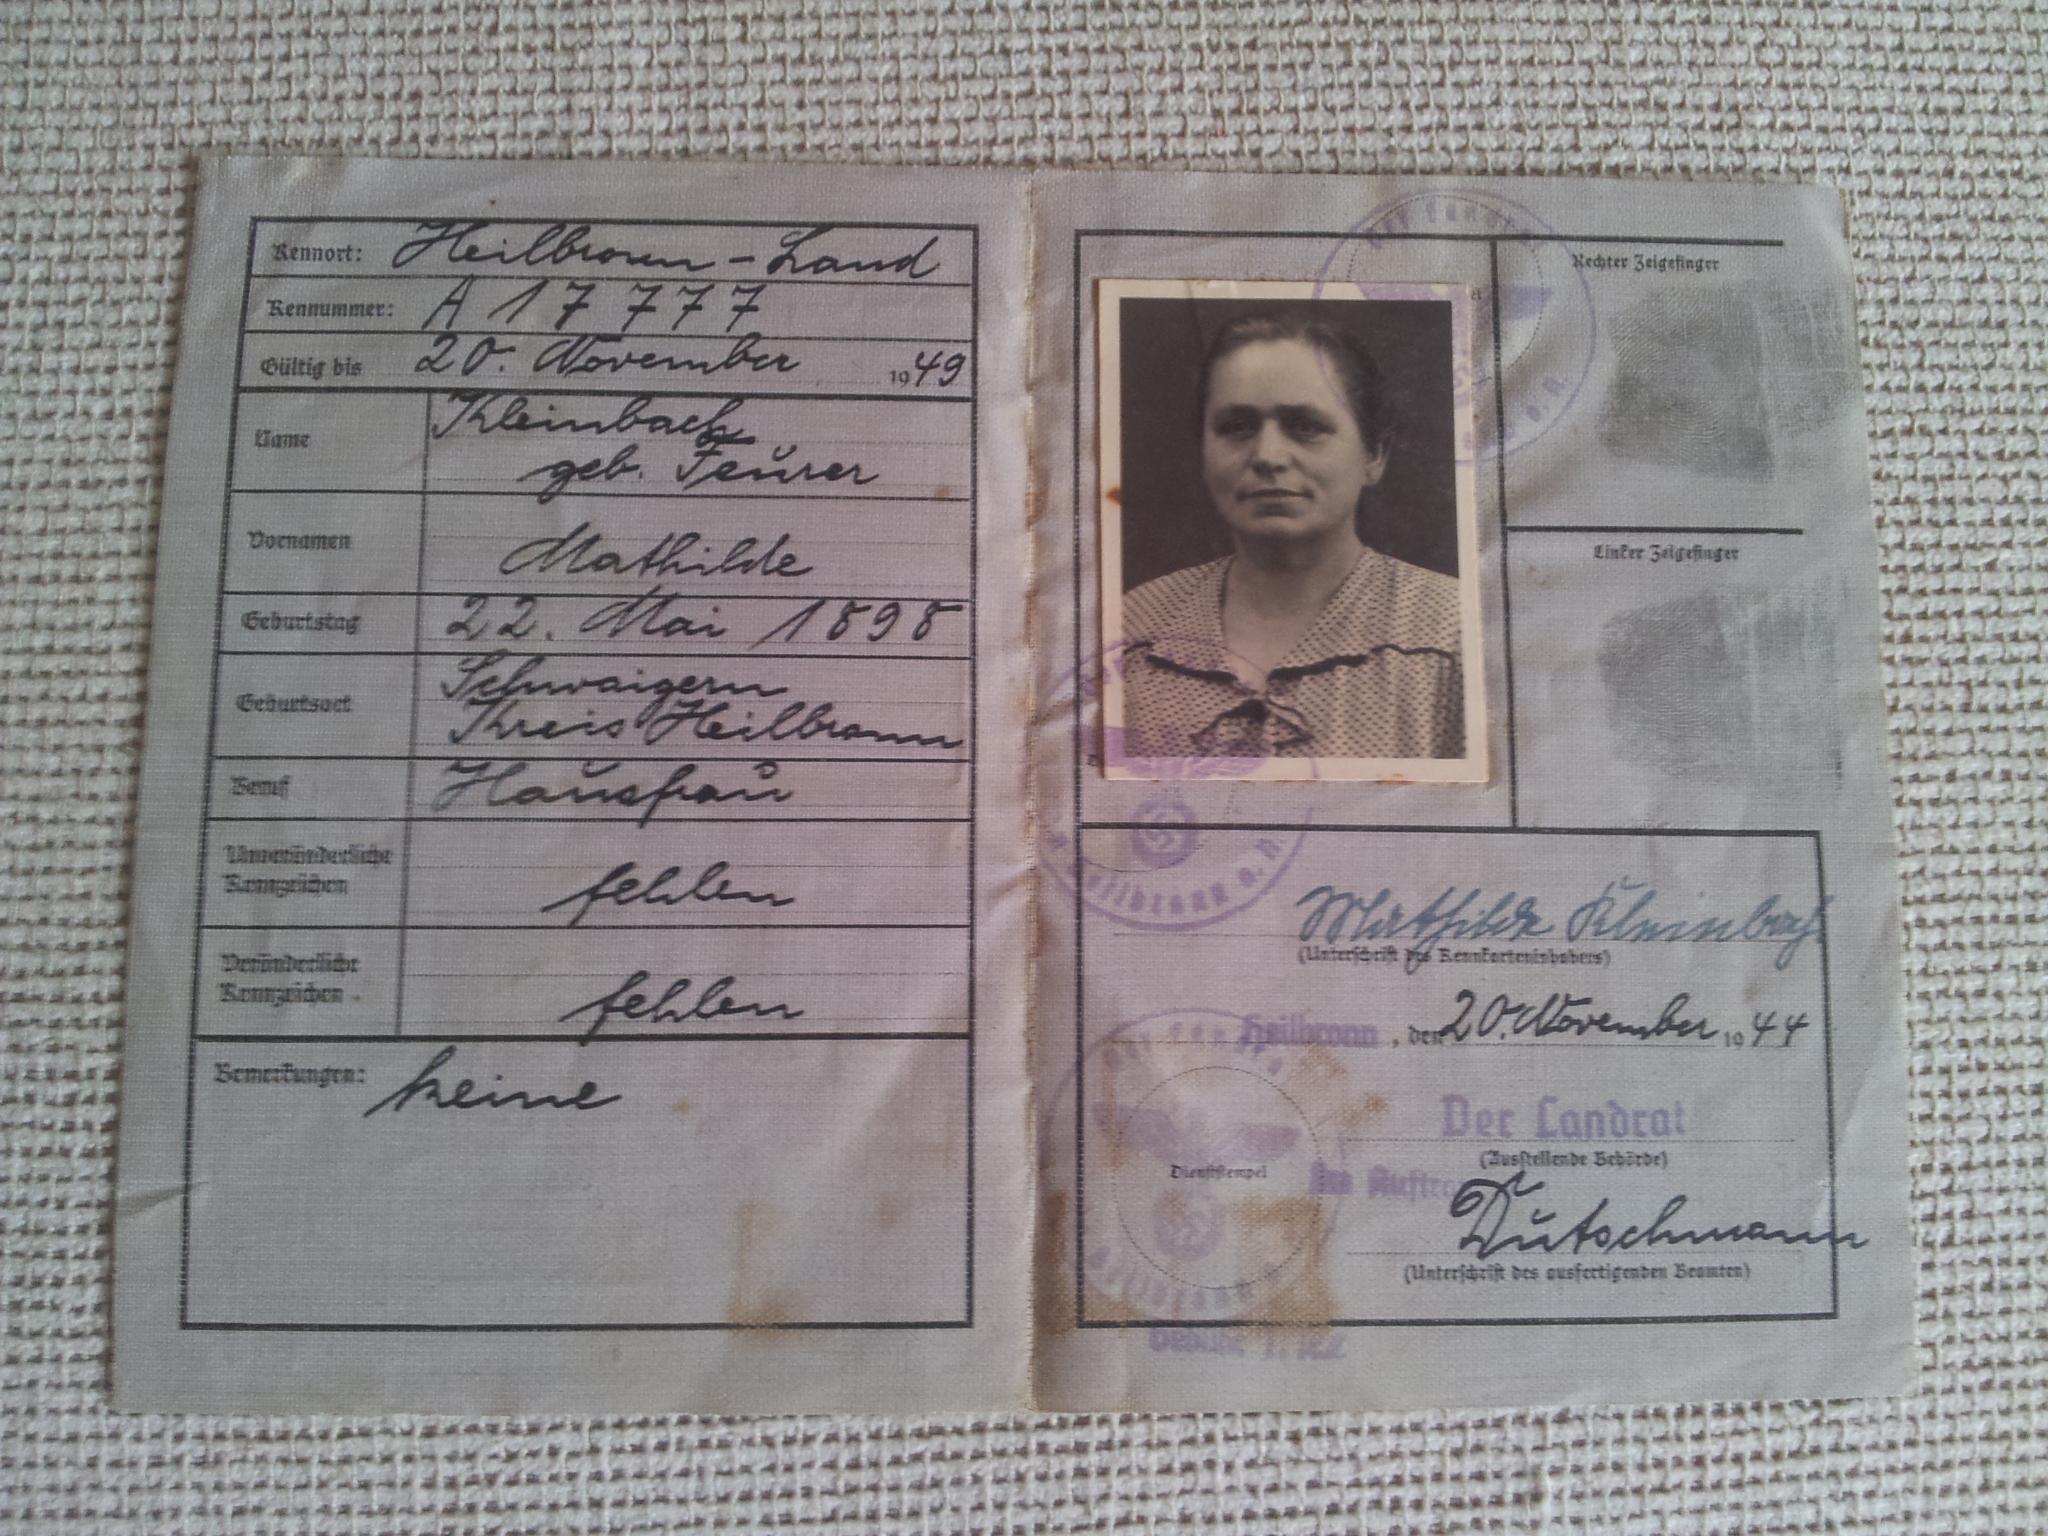 Kennort: Heilbronn-Land
Kennummer: A 17 777
Gültig bis 20. November 1949
Name Kleinbach
geb. Feurer
Vornamen Mathilde
Geburtstag 22. Mai 1898
Geburtsort Schwaigern
Kreis Heilbronn
Beruf Hausfrau
Unveränderliche
Kennzeichen fehlen
Veränderliche
Kennzeichen fehlen
Bemerkungen: keine
Der Landrat
Rechter Zeigefinger
Linker Zeigefinger
Heilbronn a. N.
Mathilde Kleinbach
(Unterschrift des Kennkarteninhabers)
Heilbronn, den 20. November 1944
Der Landrat
(Ausstellende Behörde)
Dienststempel
Im Auftrag
Dutschmann
(Unterschrift des ausfertigenden Beamten)